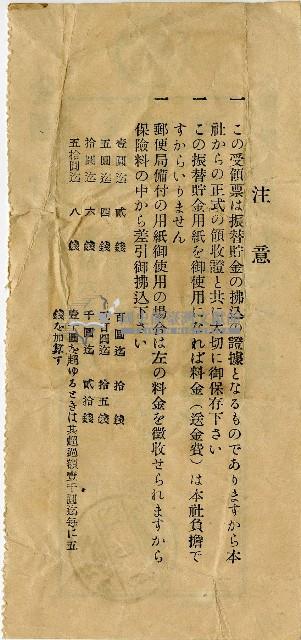 注意
一 この受領票は振替貯金の拂込の證據となるものでありますから本
社からの正式の領收證と共に大切に御保存下さい
一 この振替貯金用紙を御使用になれば料金(送金費)は本社負擔で
すからいりません
一 郵便局備付の用紙御使用の場合は左の料金を徵收せられますから
保險料の中から差引御拂込下さい
壹圓迄 貳錢 百圓迄 拾錢
五圓迄 四錢 五百圓迄 拾五錢
拾圓迄 六錢 千圓迄 貳拾錢
五拾圓迄 八錢 壹千圓を超ゆるときは其超過額壹千圓迄每に五
錢を加算す